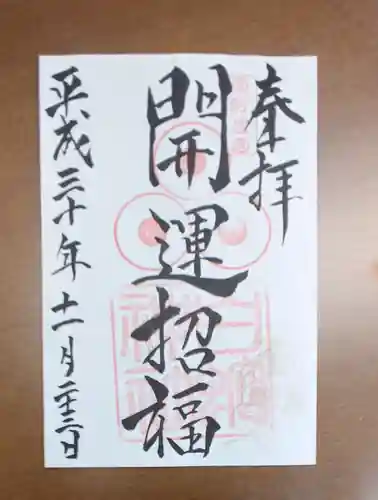 奉拝
開運招福
平成三十年十一月二十三日